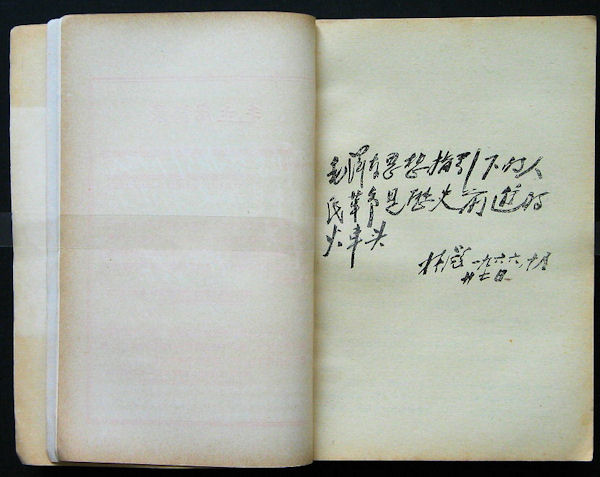 毛澤东思想指引下的人
民革命是歷史前進的
火車头
林彪 一九六六，十月
廿七日